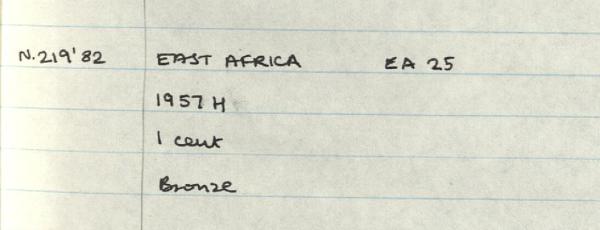 N.219'82 EAST AFRICA EA 25
1957 H
1 cent
Bronze